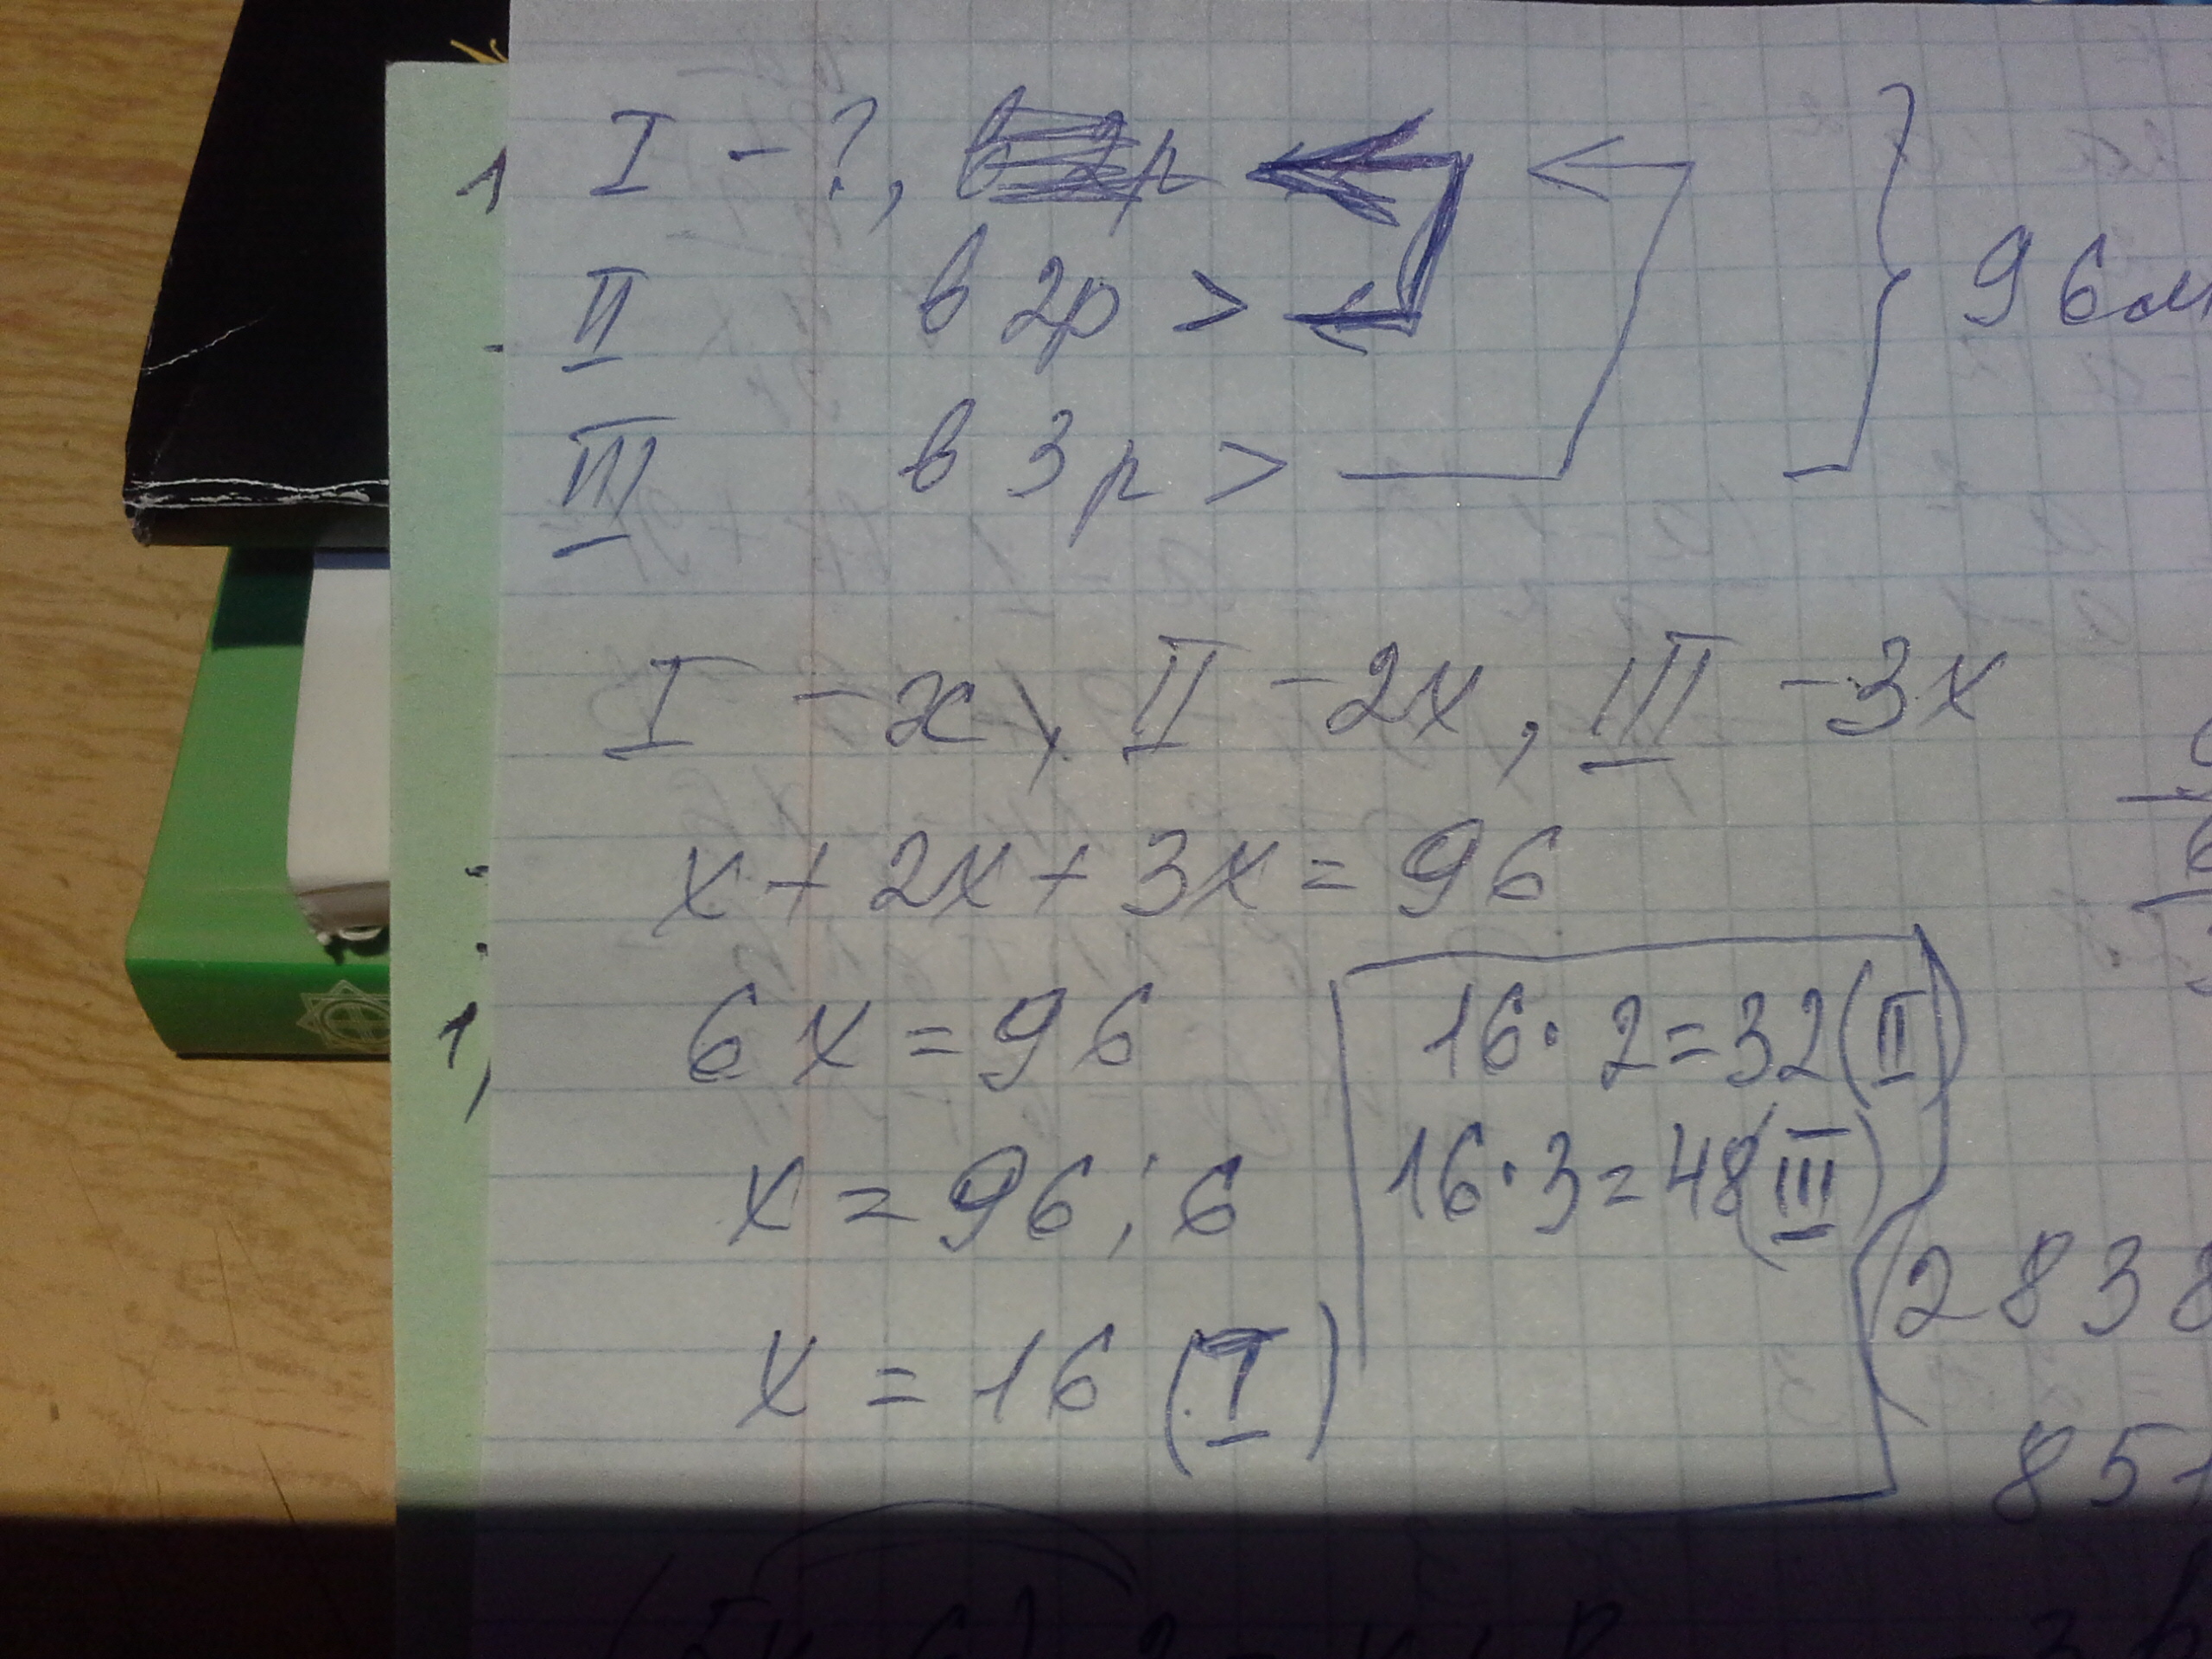 I - ?,
II в 2р >
III в 3р >
96м
I - x, II - 2x, III - 3x
x + 2x + 3x = 96
6x = 96
x = 96 : 6
x = 16 (I)
16 · 2 = 32 (II)
16 · 3 = 48 (III)
2838
851